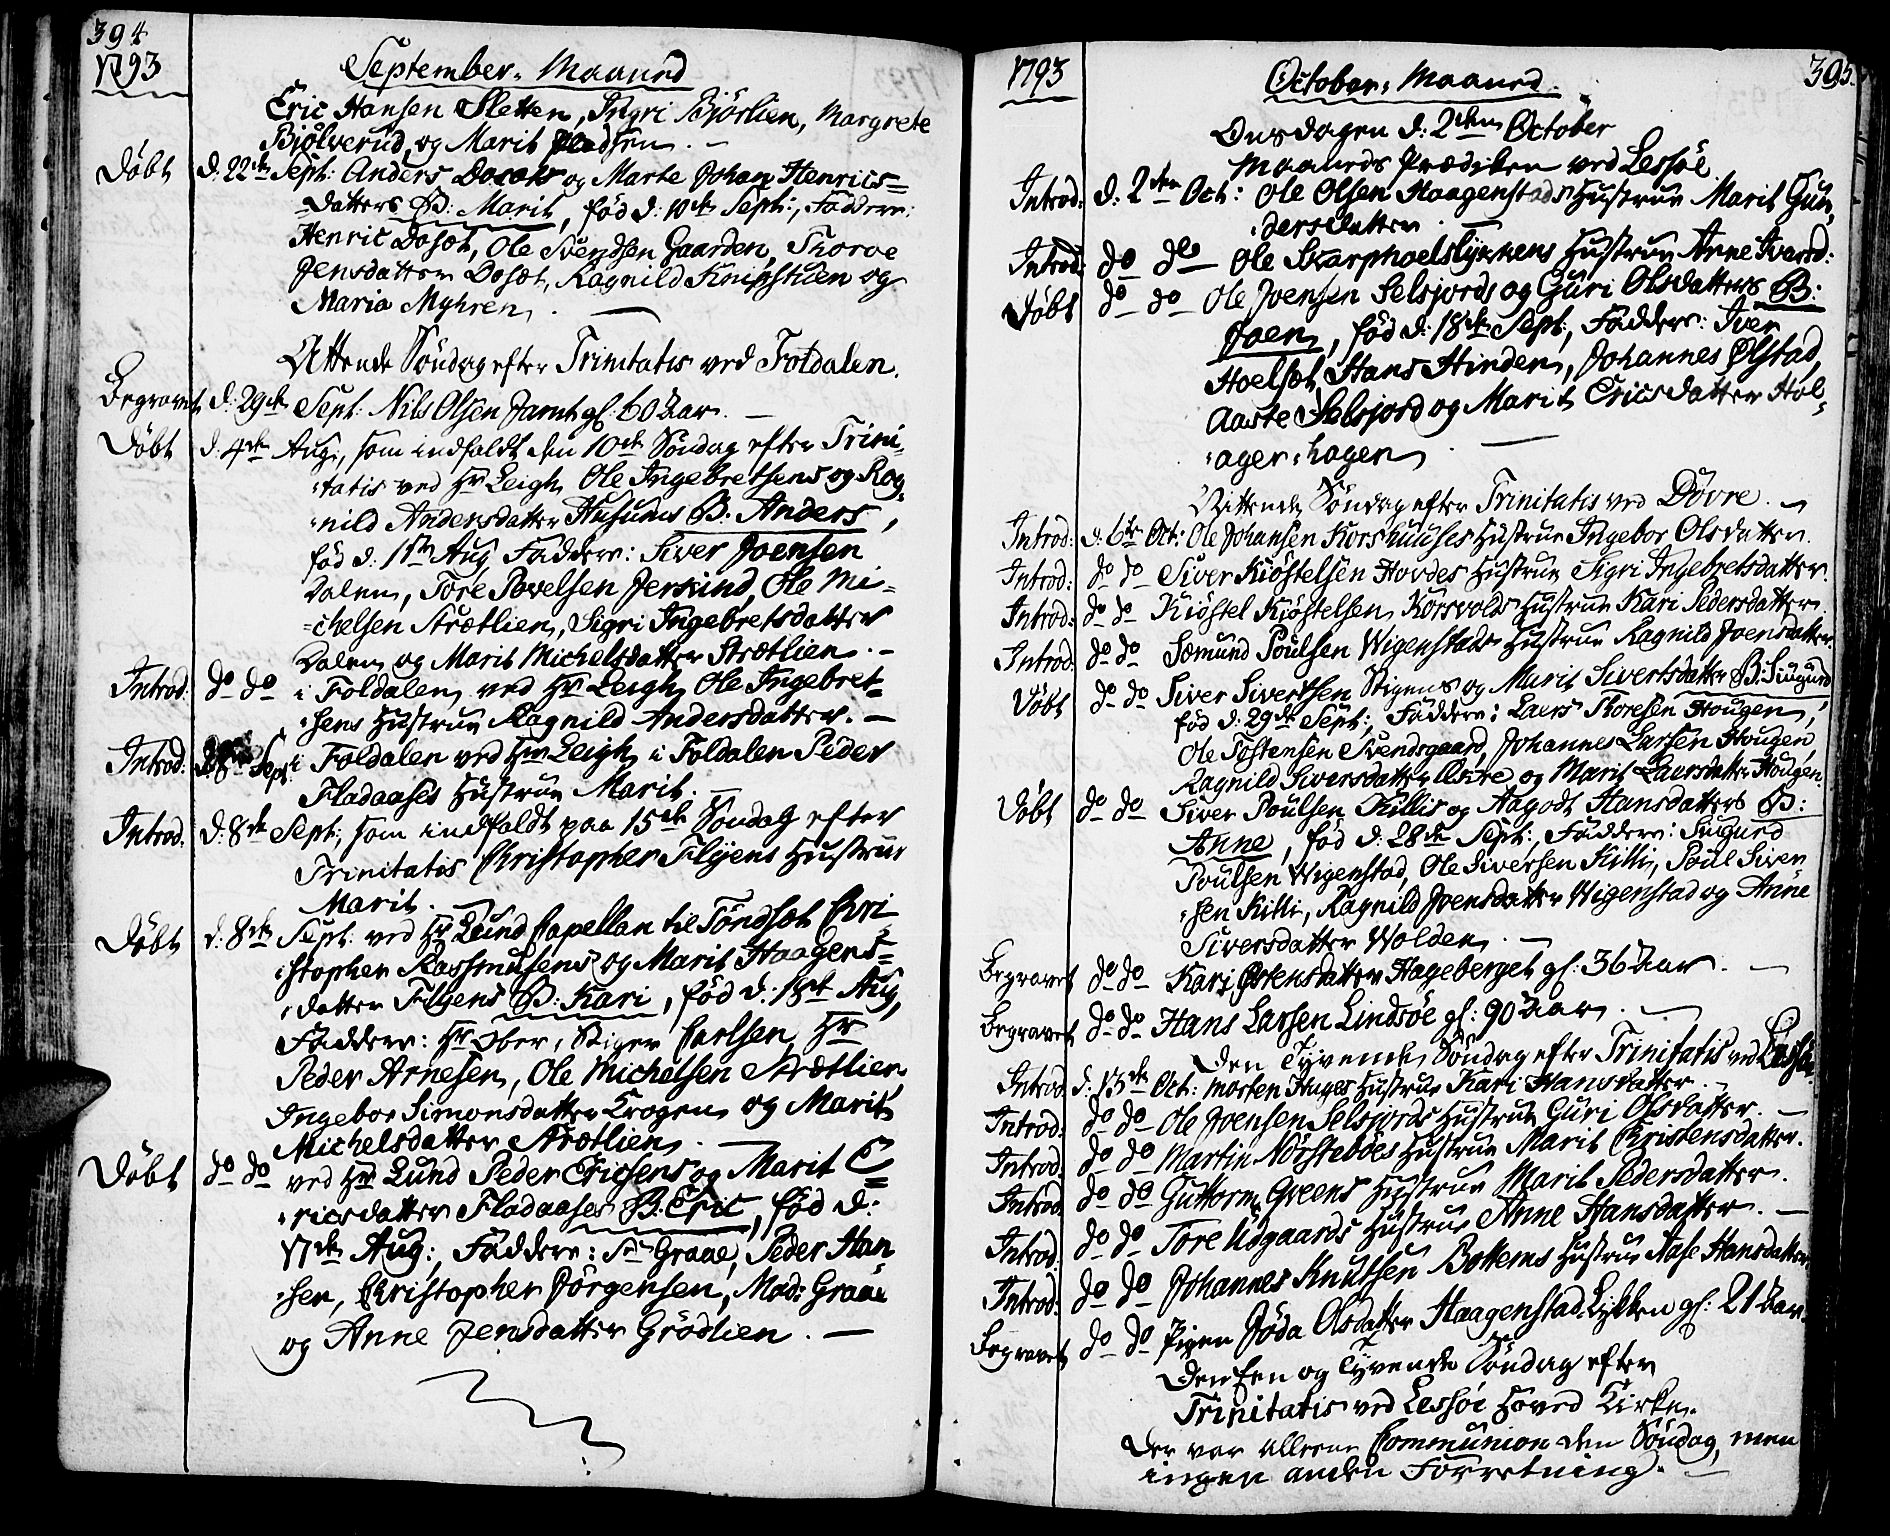 394
1793
September. Maaned
Eric Hansen Sletten, Ingri Bjørlien, Margrete
Bjølverud, og Marit
Døbt d: 22de Sept: Anders Dosæts og Marte Johan Henrics=
=datters B: Marit, fød d: 10de Sept:, Faddere:
Henric Dosæt, Ole Svendsen Gaarden, Thore
Jensdatter Dosæt, Ragnild Knipstuen og
Maria Myhren.
Attende Søndag efter Trinitatis ved Foldalen.
Begravet d: 29de Sept: Nils Olsen Jamt gl: 60 Aar.
Døbt d: 4de Aug:, som indfaldt den 10de Søndag efter Trini-
tatis ved Hr Leigh, Ole Ingebretsens og Rag-
nild Andersdatter Husums B: Anders,
fød d: 1ste Aug, Faddere: Siver Joensen
Dalen, Tore Povelsen Jerkind, Ole Mi-
=chelsen Strætlien, Sigri Ingebretsdatter
Dalen og Marit Michelsdatter Strætlien.
Introd: do do i Foldalen, ved Hr Leigh, Ole Ingebret=
sens Hustrue Ragnild Andersdatter.
Introd: Sept: i Foldalen ved Hr Leigh i Foldalen Peder
Fladaases Hustrue Marit.
Introd. d: 8de Sept:, som indfaldt paa 15de Søndag efter
Trinitatis Christopher Flyens Hustrue
Marit.
Døbt d: 8de Sept: ved Hr Lund Capellan til Tøndset Chri-
stopher Rasmusens og Marit Haagens=
datter Flyens B: Kari, fød d: 18de Aug,
Faddere: Hr Ober-Stiger Carlsen, Hr
Peder Arnesen, Ole Michelsen Strætlien
Ingebor Simonsdatter Krogen og Marit
Michelsdatter Strætlien.
Døbt do do ved Hr Lund Peder Ericsens og Marit E=
ricsdatter Fladaases B. Eric, fød d:
17de Aug:, Faddere: Sr Graae, Peder Han
sen, Christopher Jørgensen, Mad: Graae
og Anne Jensdatter Grødlien.
1793
395.
October. Maaned.
Onsdagen d: 2den October
Maaneds Prædiken ved Lessøe.
Introd: d: 2den Oct: Ole Olsen Haagenstads Hustrue Marit Gun-
dersdatter.
Introd: do do Ole Skarphoelslykkens Hustrue Anne Iversd:
Døbt do do Ole Joensen Selsjords og Guri Olsdatters B:
Joen, fød d: 18de Sept:, Faddere: Iver
Hoelset, Hans Hinden, Johannes Ølstad,
Aaste Selsjord og Marit Ericsdatter Høl-
ager-hagen
Nittende Søndag efter Trinitatis ved Dovre.
Introd: d: 6te Oct: Ole Johansen Korshuuses Hustrue Ingebor Olsdatter.
Introd: do do Siver Kiøstelsen Hovdes Hustrue Sigri Ingebretsdatter.
Introd: do do Kiøstel Kiøstelsen Korsvolds Hustrue Kari Pedersdatter.
Introd: do do Sæmund Poulsen Wigenstads Hustrue Ragnild Joensdatter.
Døbt do do Siver Sivertsen Stigens og Marit Sivertsdatter B: Siugurd
fød d: 29de Sept:, Faddere: Laers Thoresen Hougen,
Ole Tostensen Svendsgaard, Johannes Larsen Hougen,
Ragnild Siversdatter og Marit Laersdatter Hougen.
Døbt do do Siver Poulsen Killis og Aagodt Hansdatters B:
Anne, fød d: 28de Sept:, Faddere: Siugurd
Poulsen Wigenstad, Ole Siversen Killi, Poul Siver-
sen Killi, Ragnild Joensdatter Wigenstad og Anne
Siversdatter Wolden.
Begravet do do Kari Østensdatter Hageberget gl: 36 Aar.
Begravet do do Hans Larsen Lindsøe gl: 90 Aar.
Den Tyvende Søndag efter Trinitatis ved Lessøe.
Introd d: 13de Oct: Morten Huges Hustrue Kari Hansdatter.
Introd: do do Ole Joensen Selsjords Hustrue Guri Olsdatter.
Introd: do do Martin Nørsteboes Hustrue Marit Christensdatter.
Introd. do do Guttorm Greens Hustrue Marit Pedersdatter.
Introd. do do Tore Udgaards Hustrue Anne Hansdatter.
Introd: do do Johannes Knutsen Bottems Hustrue Aase Hansdatter.
Begravet do do Pigen Jøda Olsdatter Haagenstad-Lykken gl: 21 Aar.
Den Een og Tyvende Søndag efter
Trinitatis ved Lessøe Hoved Kirke.
Der var alleene Communion den Søndag, men
ingen anden Forretning.